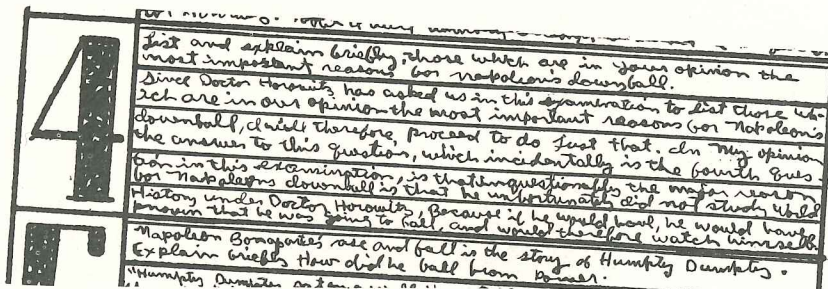 4
List and explain briefly, those which are in your opinion the
most important reasons for napoleon's downfall.
Since Doctor Horowitz has asked us in this examination to list those wh-
ich are in our opinion the most important reasons for Napoleon's
downfall, I will therefore, proceed to do just that. In my opinion
the answer to this question, which incidentally is the fourth ques-
tion in this examination, is that unquestionably the major reason
for Napoleons downfall is that he unfortunately did not study World
History under Doctor Horowitz, Because if he would have, he would have
known that he was going to fall, and would therefore watch himself.
Napoleon Bonaparte's rise and fall is the story of Humpty Dumpty.
Explain briefly How did he fall from Power.
"Humpty Dumpty